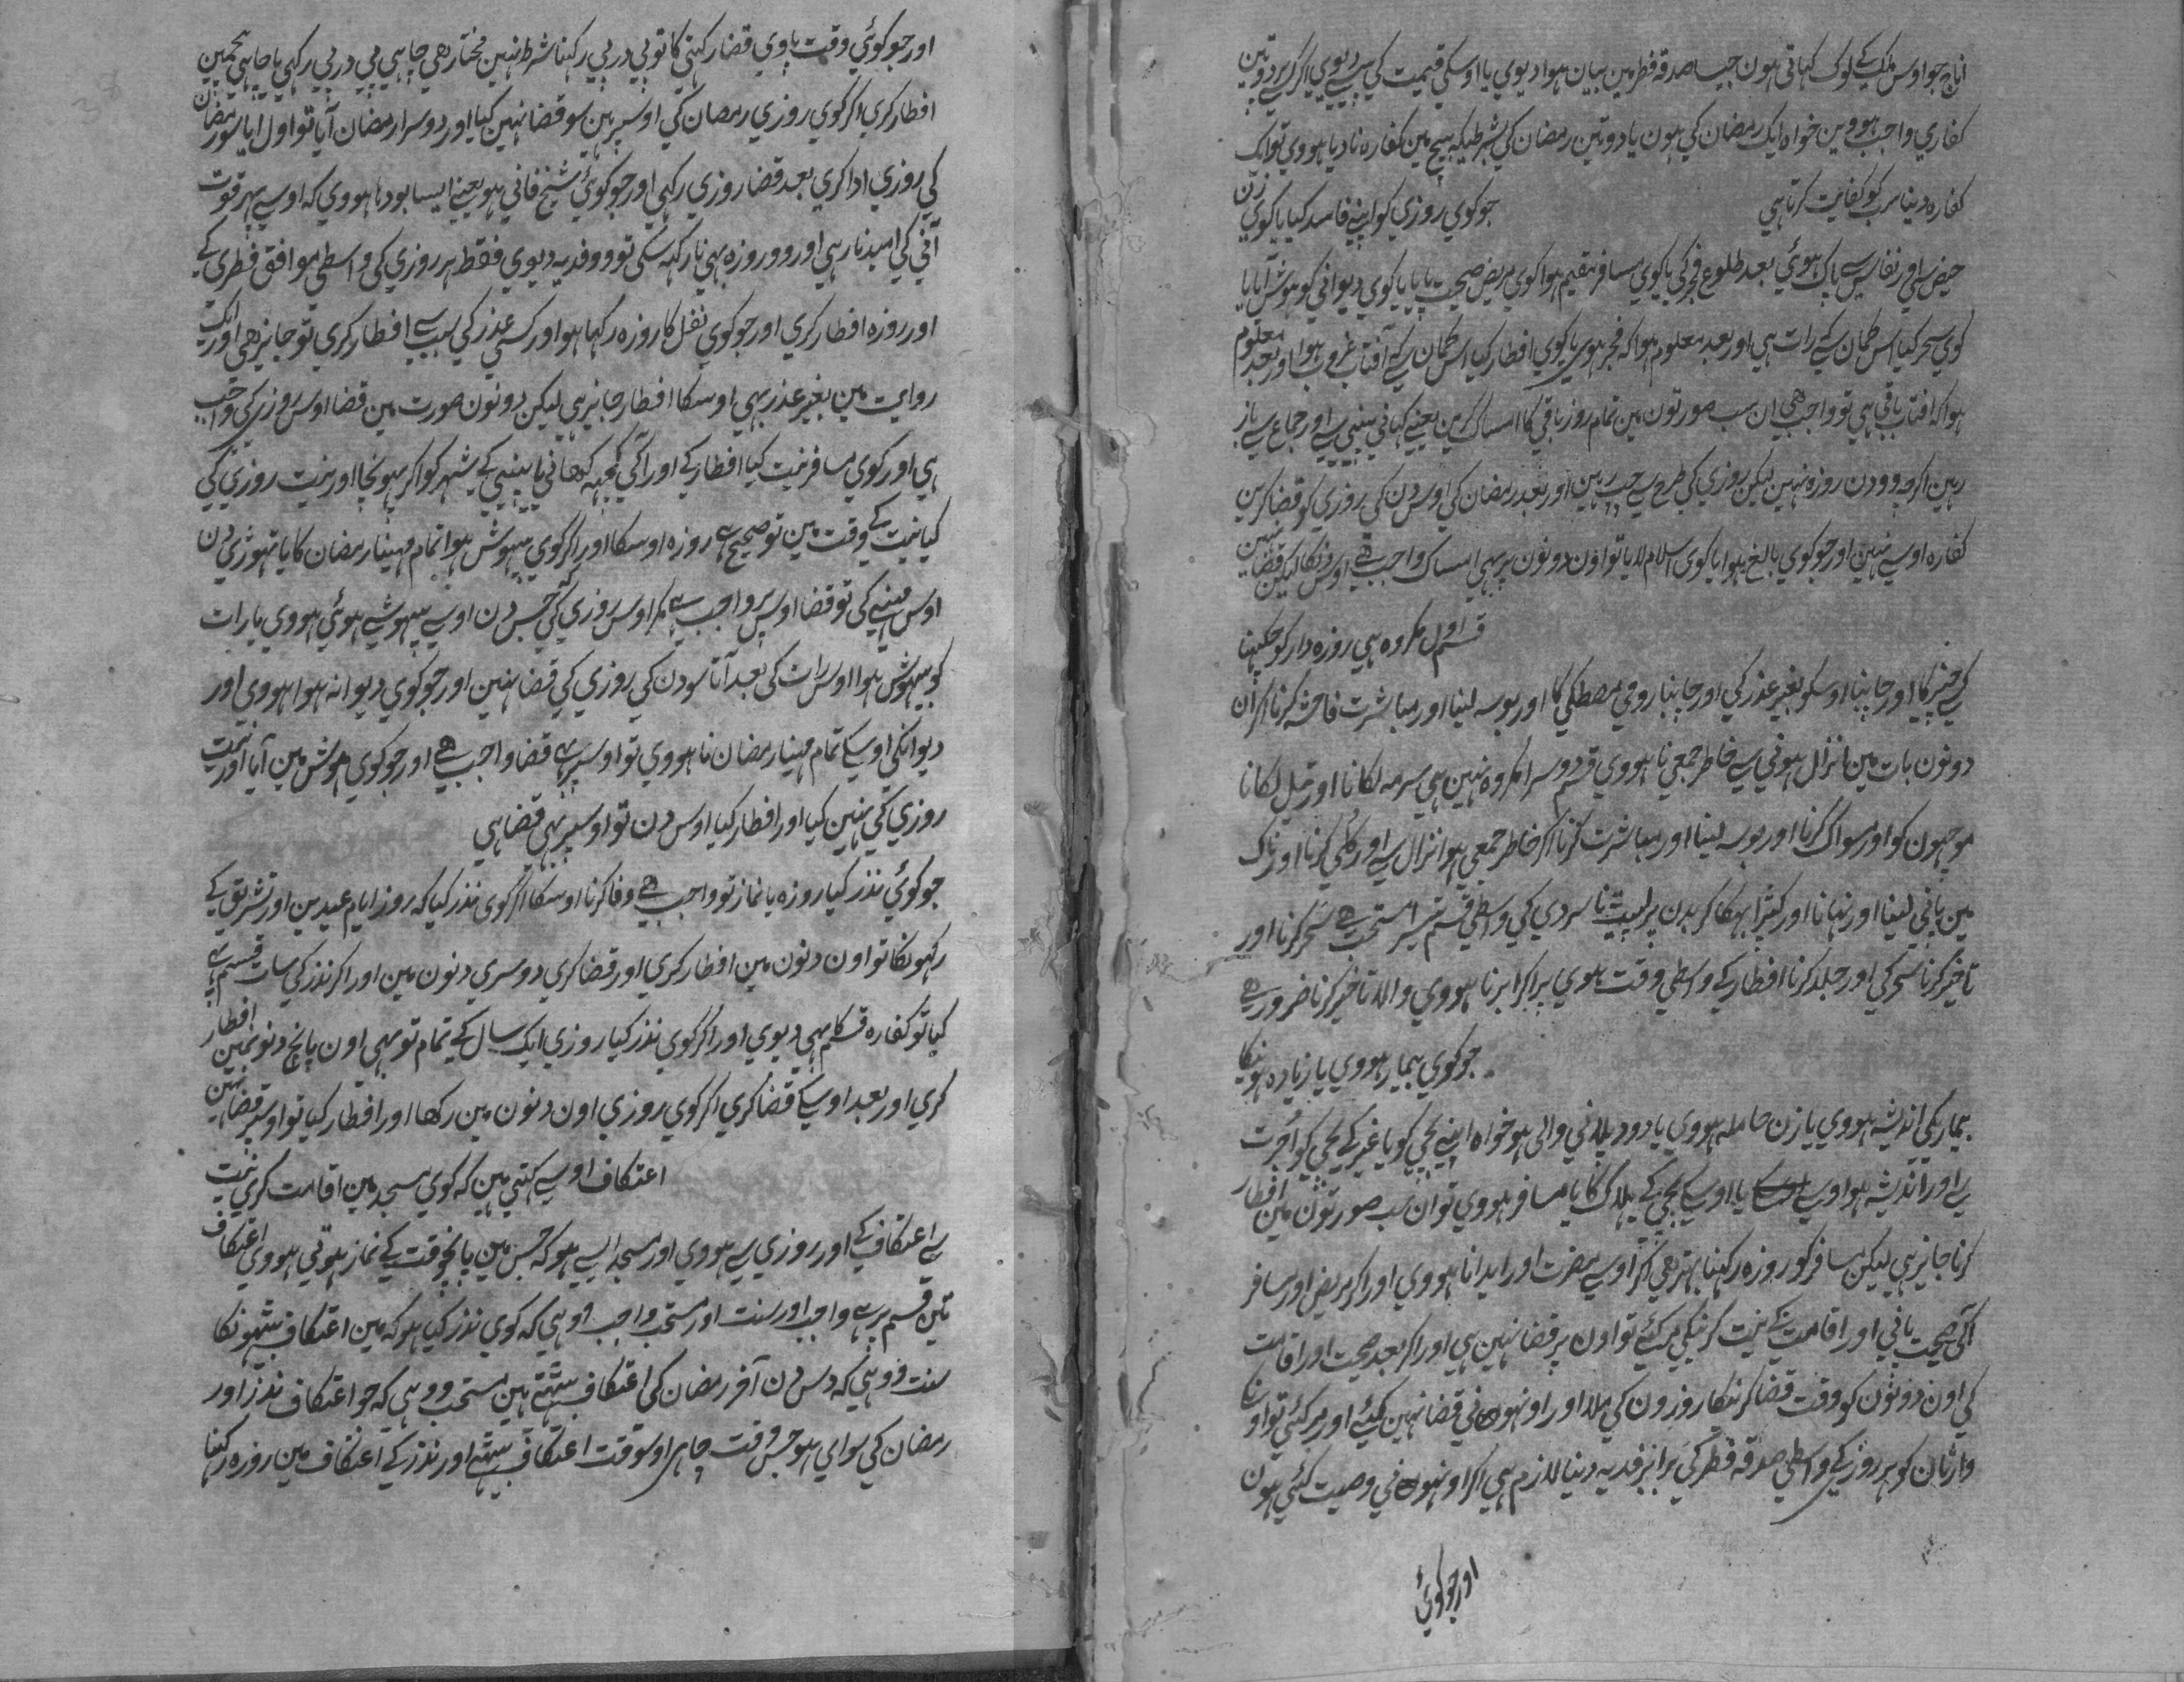 اناج جو اوس ملک کے لوک کہاتی ہون جیسا صدقہ فطر مین بیان ہوا دیوی یا اوسکی قیمت کی پیسے دیوی اگر کسے پر دو تین
کفاری واجب ہووین خواہ ایک رمضان کی ہون یا دو تین رمضان کی بشرطیکہ بیچ مین کفارہ نا دیا ہووی تو ایک
کفارہ دینا سب کو کفایت کرتا ہی جو کوی روزی کو اپنے فاسد کیا یا کوی زن
حیض سے اور نفاس سے پاک ہوئی بعد طلوع فجر کی یا کوی مسافر مقیم ہوا کوی مریض صحت پایا یا کوی دیوانی کو ہوش آیا یا
کوی سحر کیا اس گمان سے کے رات ہی اور بعد معلوم ہوا کہ فجر ہوی یا کوی افطار کیا اس گمان سے کے آفتاب غروب ہوا اور بعد معلوم
ہوا کہ افتاب باقی ہی تو واجب ہی ان سب صورتون مین تمام روز باقی کا امساک کرین یعنے کہانی پینے سے اور جماع سے باز
رہین اگرچہ وو دن روزہ نہین لیکن روزی کی طرح سے چپ رہین اور بعد رمضان کی اوس دن کی روزی کو قضا کرین
کفارہ اوسے نہین اور جو کوی بالغ ہوا یا کوی اسلام لایا تو اون دونون پر بہی امساک واجب ہے اوس دنکا لیکن قضا نہین
قسم اول مکروہ ہی روزہ دار کو چکہنا
کسے چیز کا اور چابنا اوسکو بغیر عذر کی اور چابنا رومی مصطکی کا اور بوسہ لینا اور مباشرت فاحشہ کرنا اگر ان
دونون بات مین انزال ہونی سے خاطر جمعی نا ہووی قسم دوسرا مکروہ نہین ہی سرمہ لکانا اور تیل لکانا
موچہون کو اور مسواک کرنا اور بوسہ لینا اور مباشرت کرنا اگر خاطر جمعی ہو انزال سے اور کلی کرنا اور ناک
مین پانی لینا اور نہانا اور کپڑا بہکا کر بدن پر لپیٹنا سردی کی واسطی قسم تیسرا مستحب ہے سحر کرنا اور
تاخیر کرنا سحر کی اور جلد کرنا افطار کے واسطی وقت ہوی پر اگر ابر نا ہووی والا تاخیر کرنا ضرور ہے
جو کوی بیمار ہووی یا زیادہ ہونیکا
بیماریکی اندیشہ ہووی یا زن حاملہ ہووی یا دود پلانی والی ہو خواہ اپنے بچی کو یا غیر کے بچی کو اجرت
سے اور اندیشہ ہو اوسے یا اوسکے بچی کے ہلاک کا یا مسافر ہووی تو ان سب صورتون مین افطار
کرنا جایز ہی لیکن مسافر کو روزہ رکہنا بہتر ہی اگر اوسے مضرت اور ایدا نا ہووی اور اگر مریض اور مسافر
آکی صحت پانی اور اقامت کے نیت کرنیکی مر گئے تو اون پر قضا نہین ہی اور اگر بعد صحت اور اقامت
کی اون دونون کو وقت قضا کرنیکا روزون کی ملا اور اونہون نی قضا نہین کیئے اور مر کئی تو اونکا
وارثان کو ہر روز کے واسطی صدقہ فطر کی برابر فدیہ دینا لازم ہی اگر اونہون نی وصیت کئی ہون
اور جو کوئی
اور جو کوئی وقت پاوی قضا رکہنی کا تو پی در پی رکہنا شرط نہین مختار ہی چاہی پی در پی رکہی یا چاہی بیچمین
افطار کری اگر کوی روزی رمضان کی اوسپر ہین سو قضا نہین کیا اور دوسرا رمضان آیا تو اول ایا سو رمضان
کی روزی ادا کری بعد قضا روزی رکہی اور جو کوئی شیخ فانی ہو یعنے ایسا بوڈہا ہووی کہ اوسے پہر قوت
آنی کی امید نا رہی اور وو روزہ بہی نا رکہ سکی تو وو فدیہ دیوی فقط ہر روزی کی واسطی موافق فطری کے
اور روزہ افطار کری اور جو کوی نفل کا روزہ رکہا ہو اور کسی عذر کی سبب سے افطار کری تو جایز ہی اور ایک
روایت مین بغیر عذر بہی اوسکا افطار جایز ہی لیکن دونون صورت مین قضا اوس روزی کی واجب
ہی اور کوی مسافر نیت کیا افطار کے اور آکی کچہہ کہانی یا پینی کے شہر کو اکر پہونچا اور نیت روزی کی
کیا نیت کے وقت مین تو صحیح ہے روزہ اوسکا اور اگر کوی بیہوش ہوا تمام مہینا رمضان کا یا تہوڑی دن
اوس مہینے کی تو قضا اوسپر واجب ہے مگر اوس روزی کی جس دن اوسے بیہوشے ہوئی ہووی یا رات
کو بیہوش ہوا اوس رات کی بعد آتا سو دن کی روزی کی قضا نہین اور جو کوی دیوانہ ہوا ہووی اور
دیوانکی اوسکے تمام مہینا رمضان نا ہووی تو اوسپر بہی قضا واجب ہے اور جو کوی ہوش مین آیا اور نیت
روزی کی نہین کیا اور افطار کیا اوس دن تو اوسپر بہی قضا ہی
جو کوئی نذر کیا روزہ یا نماز تو واجب ہے وفا کرنا اوسکا اگر کوی نذر کیا کہ روز ایام عیدین اور تشریق کے
رکہونکا تو اون دنون مین افطار کری اور قضا کری دوسری دنون مین اور اگر نذر کی سات قسم بہی
کیا تو کفارہ قسم کا بہی دیوی اور اگر کوی نذر کیا روزی ایک سال کے تمام تو بہی اون پانچ دنونمین افطار
کری اور بعد اوسکے قضا کری اگر کوی روزی اون دنون مین رکہا اور افطار کیا تو اوسپر قضا نہین
اعتکاف اوسے کہتی ہین کہ کوی مسجد مین اقامت کری نیت
سے اعتکاف کے اور روزی سے ہووی اور مسجد ایسے ہو کہ جس مین پانچوقت کے نماز ہوتی ہووی اعتکاف
تین قسم پر ہے واجب اور سنت اور مستحب واجب وو ہی کہ کوی نذر کیا ہو کہ مین اعتکاف بیٹہونکا
سنت وو ہی کہ دس دن آخر رمضان کی اعتکاف بیٹہتے ہین مستحب وو ہی کہ جو اعتکاف نذر اور
رمضان کی سوای ہو جس وقت چاہی اوسوقت اعتکاف بیٹہے اور نذر کے اعتکاف مین روزہ رکہنا